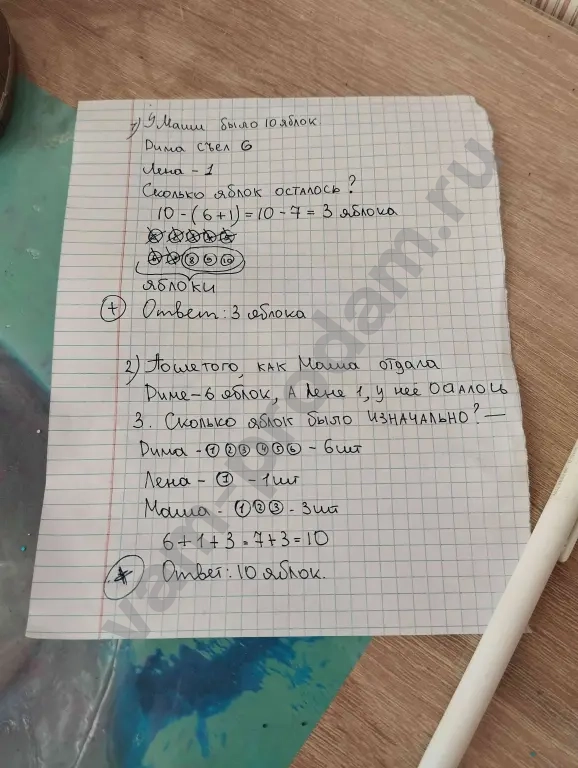 1) У Маши было 10 яблок
Дима съел 6
Лена - 1
Сколько яблок осталось?
10 - (6+1) = 10 - 7 = 3 яблока
8 9 10
яблоки
+ Ответ: 3 яблока
2) После того, как Маша отдала
Диме - 6 яблок, а Лене 1, у неё оалось
3. Сколько яблок было изначально? —
Дима - 1 2 3 4 5 6 - 6 шт
Лена - 1 - 1 шт
Маша - 1 2 3 - 3 шт
6+1+3 = 7+3 = 10
Ответ: 10 яблок.
vam-prodam.ru